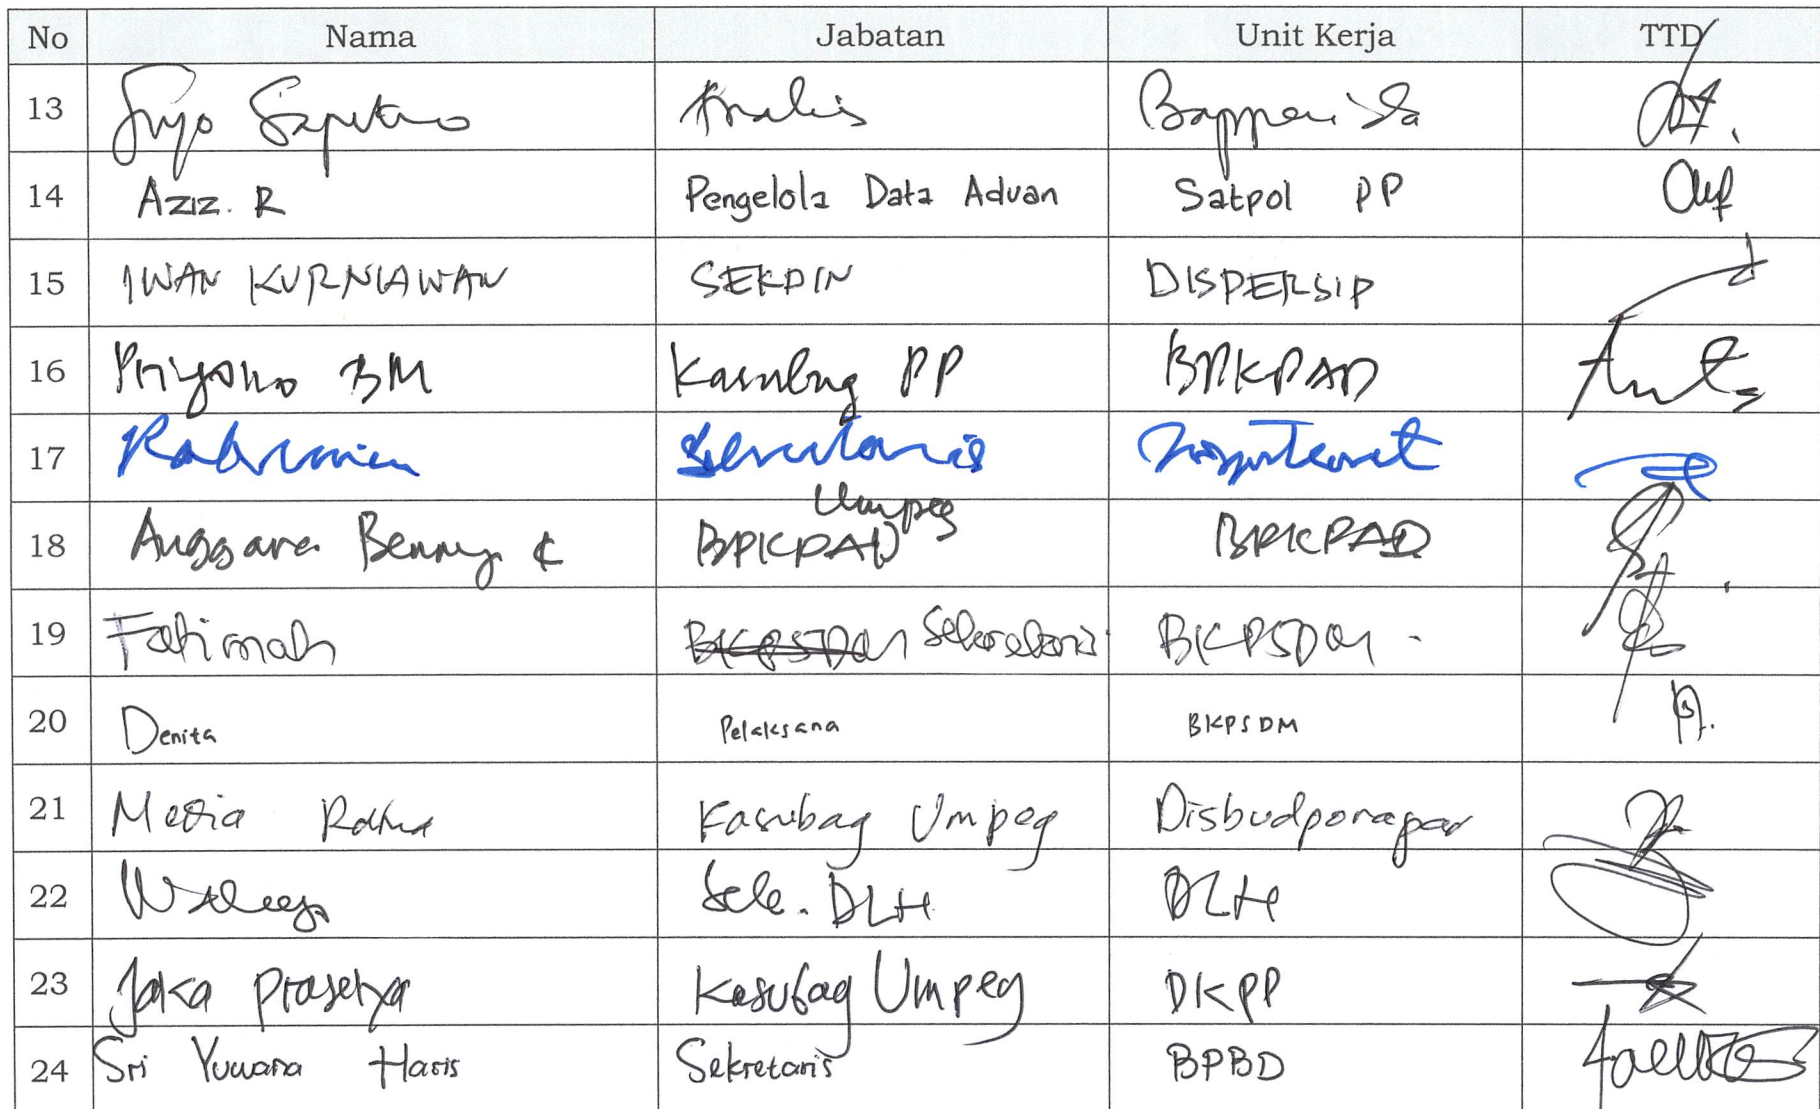 No Nama Jabatan Unit Kerja TTD
13 Suyo Saputro Analis Bapperida
14 Aziz. R Pengelola Data Aduan Satpol PP
15 IWAN KURNIAWAN SEKDIN DISPERSIP
16 Priyono BM Kasubag PP BPKPAD
17 Sekretaris Inspektorat
18 Anggara Benny BPKPAD Umpeg BPKPAD
19 Fatimah BKPSDM Sekretaris BKPSDM
20 Denita Pelaksana BKPSDM
21 Kasubag Umpeg Disbudporapar
22 Sek. DLH DLH
23 Jaka Prasetya Kasubag Umpeg DKPP
24 Sri Yuwana Haris Sekretaris BPBD